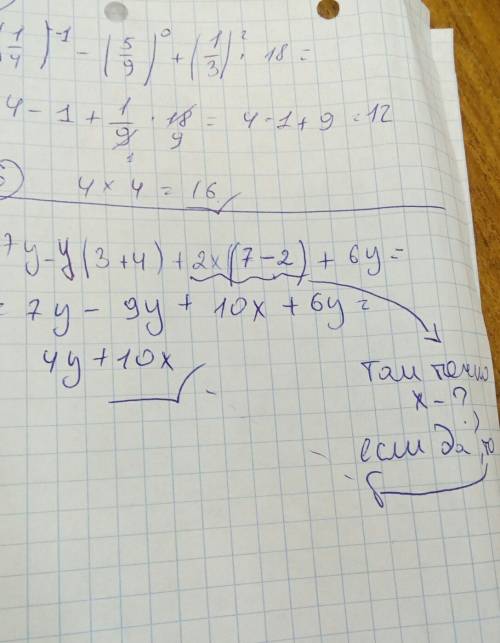 (1/4)^-1 - (5/9)^0 + (1/3)^2 · 18 =
4 - 1 + 1/9 · 18 = 4 - 1 + 9 = 12
1 9
4 x 4 = 16
7y - y(3+4) + 2x(7-2) + 6y =
= 7y - 9y + 10x + 6y =
4y + 10x
там точно
x - ?
если да, то